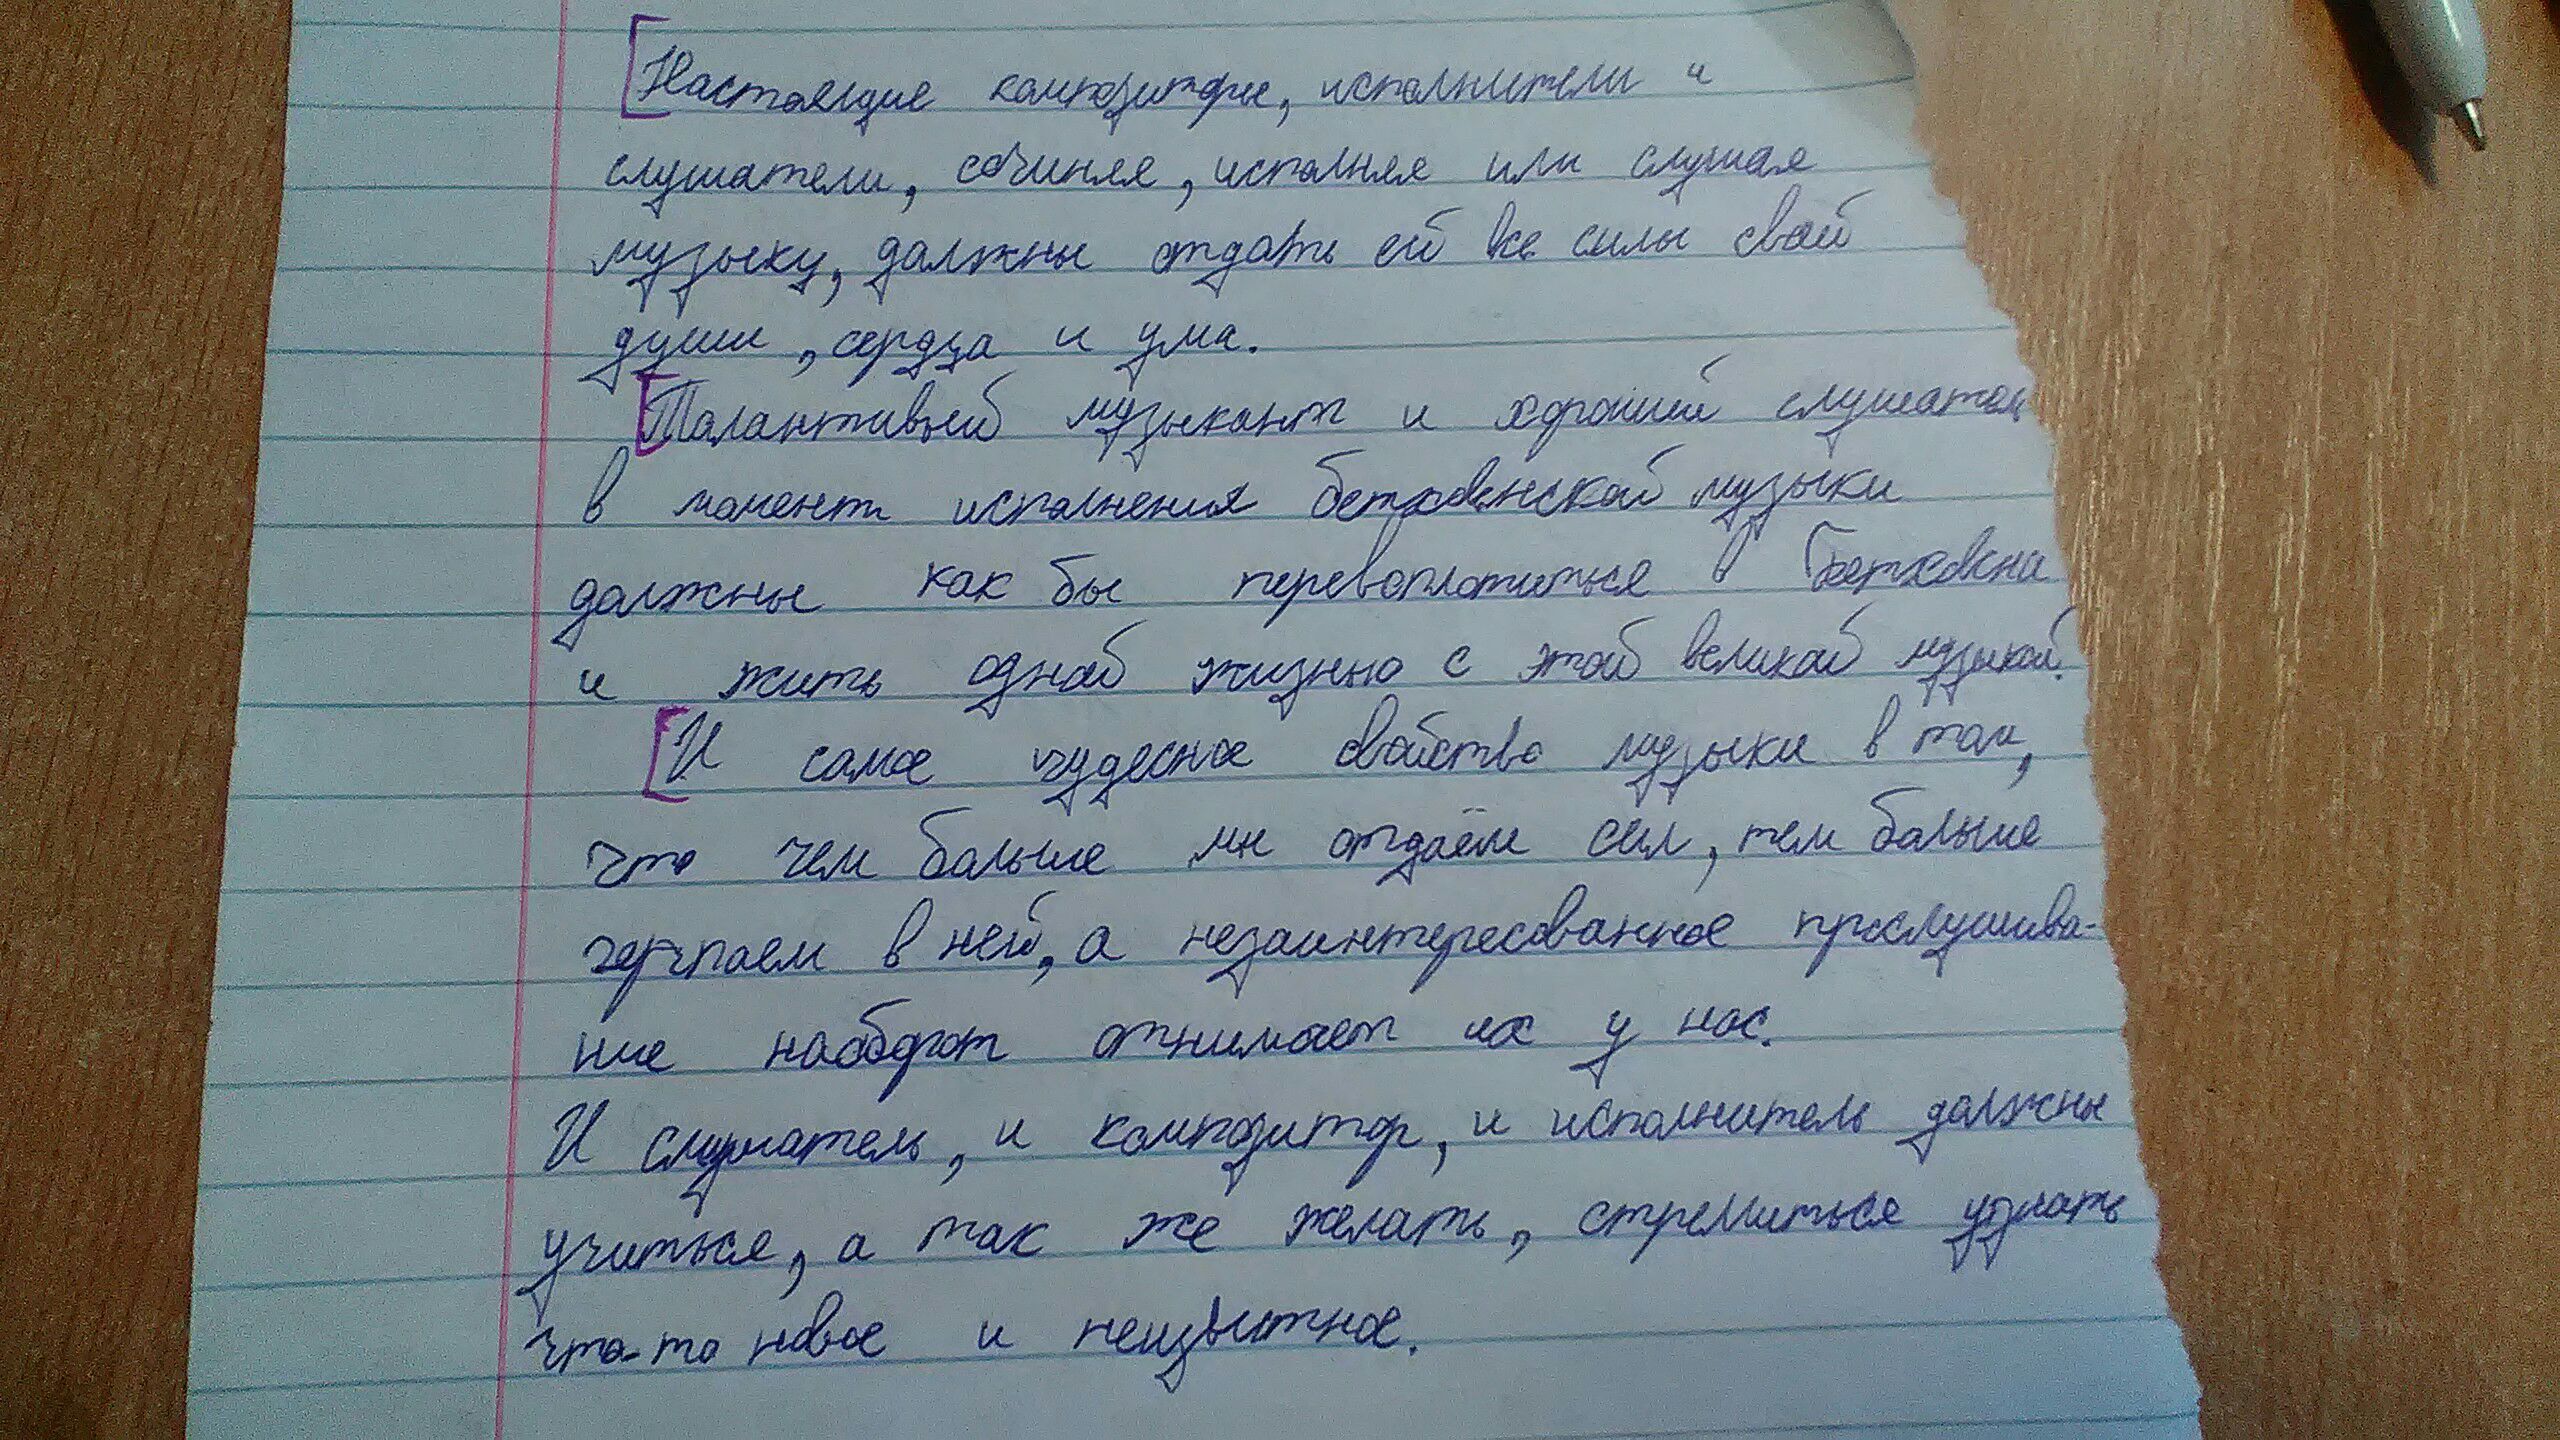 Настоящие композиторы, исполнители и
слушатели, сочиняя, исполняя или слушая
музыку, должны отдать ей все силы свой
души, сердца и ума.
Талантивый музыкант и хороший слушатель
в момент исполнения бетховенской музыки
должны как бы перевоплотиться в Бетховена
и жить одной жизнью с этой великой музыкой.
И самое чудесное свойство музыки в том,
что чем больше мы отдаём сил, тем больше
черпаем в ней, а незаинтересованное прослушива-
ние наоборот отнимает их у нас.
И слушатель, и композитор, и исполнитель должны
учиться, а так же желать, стремиться узнать
что-то новое и неизвытное.